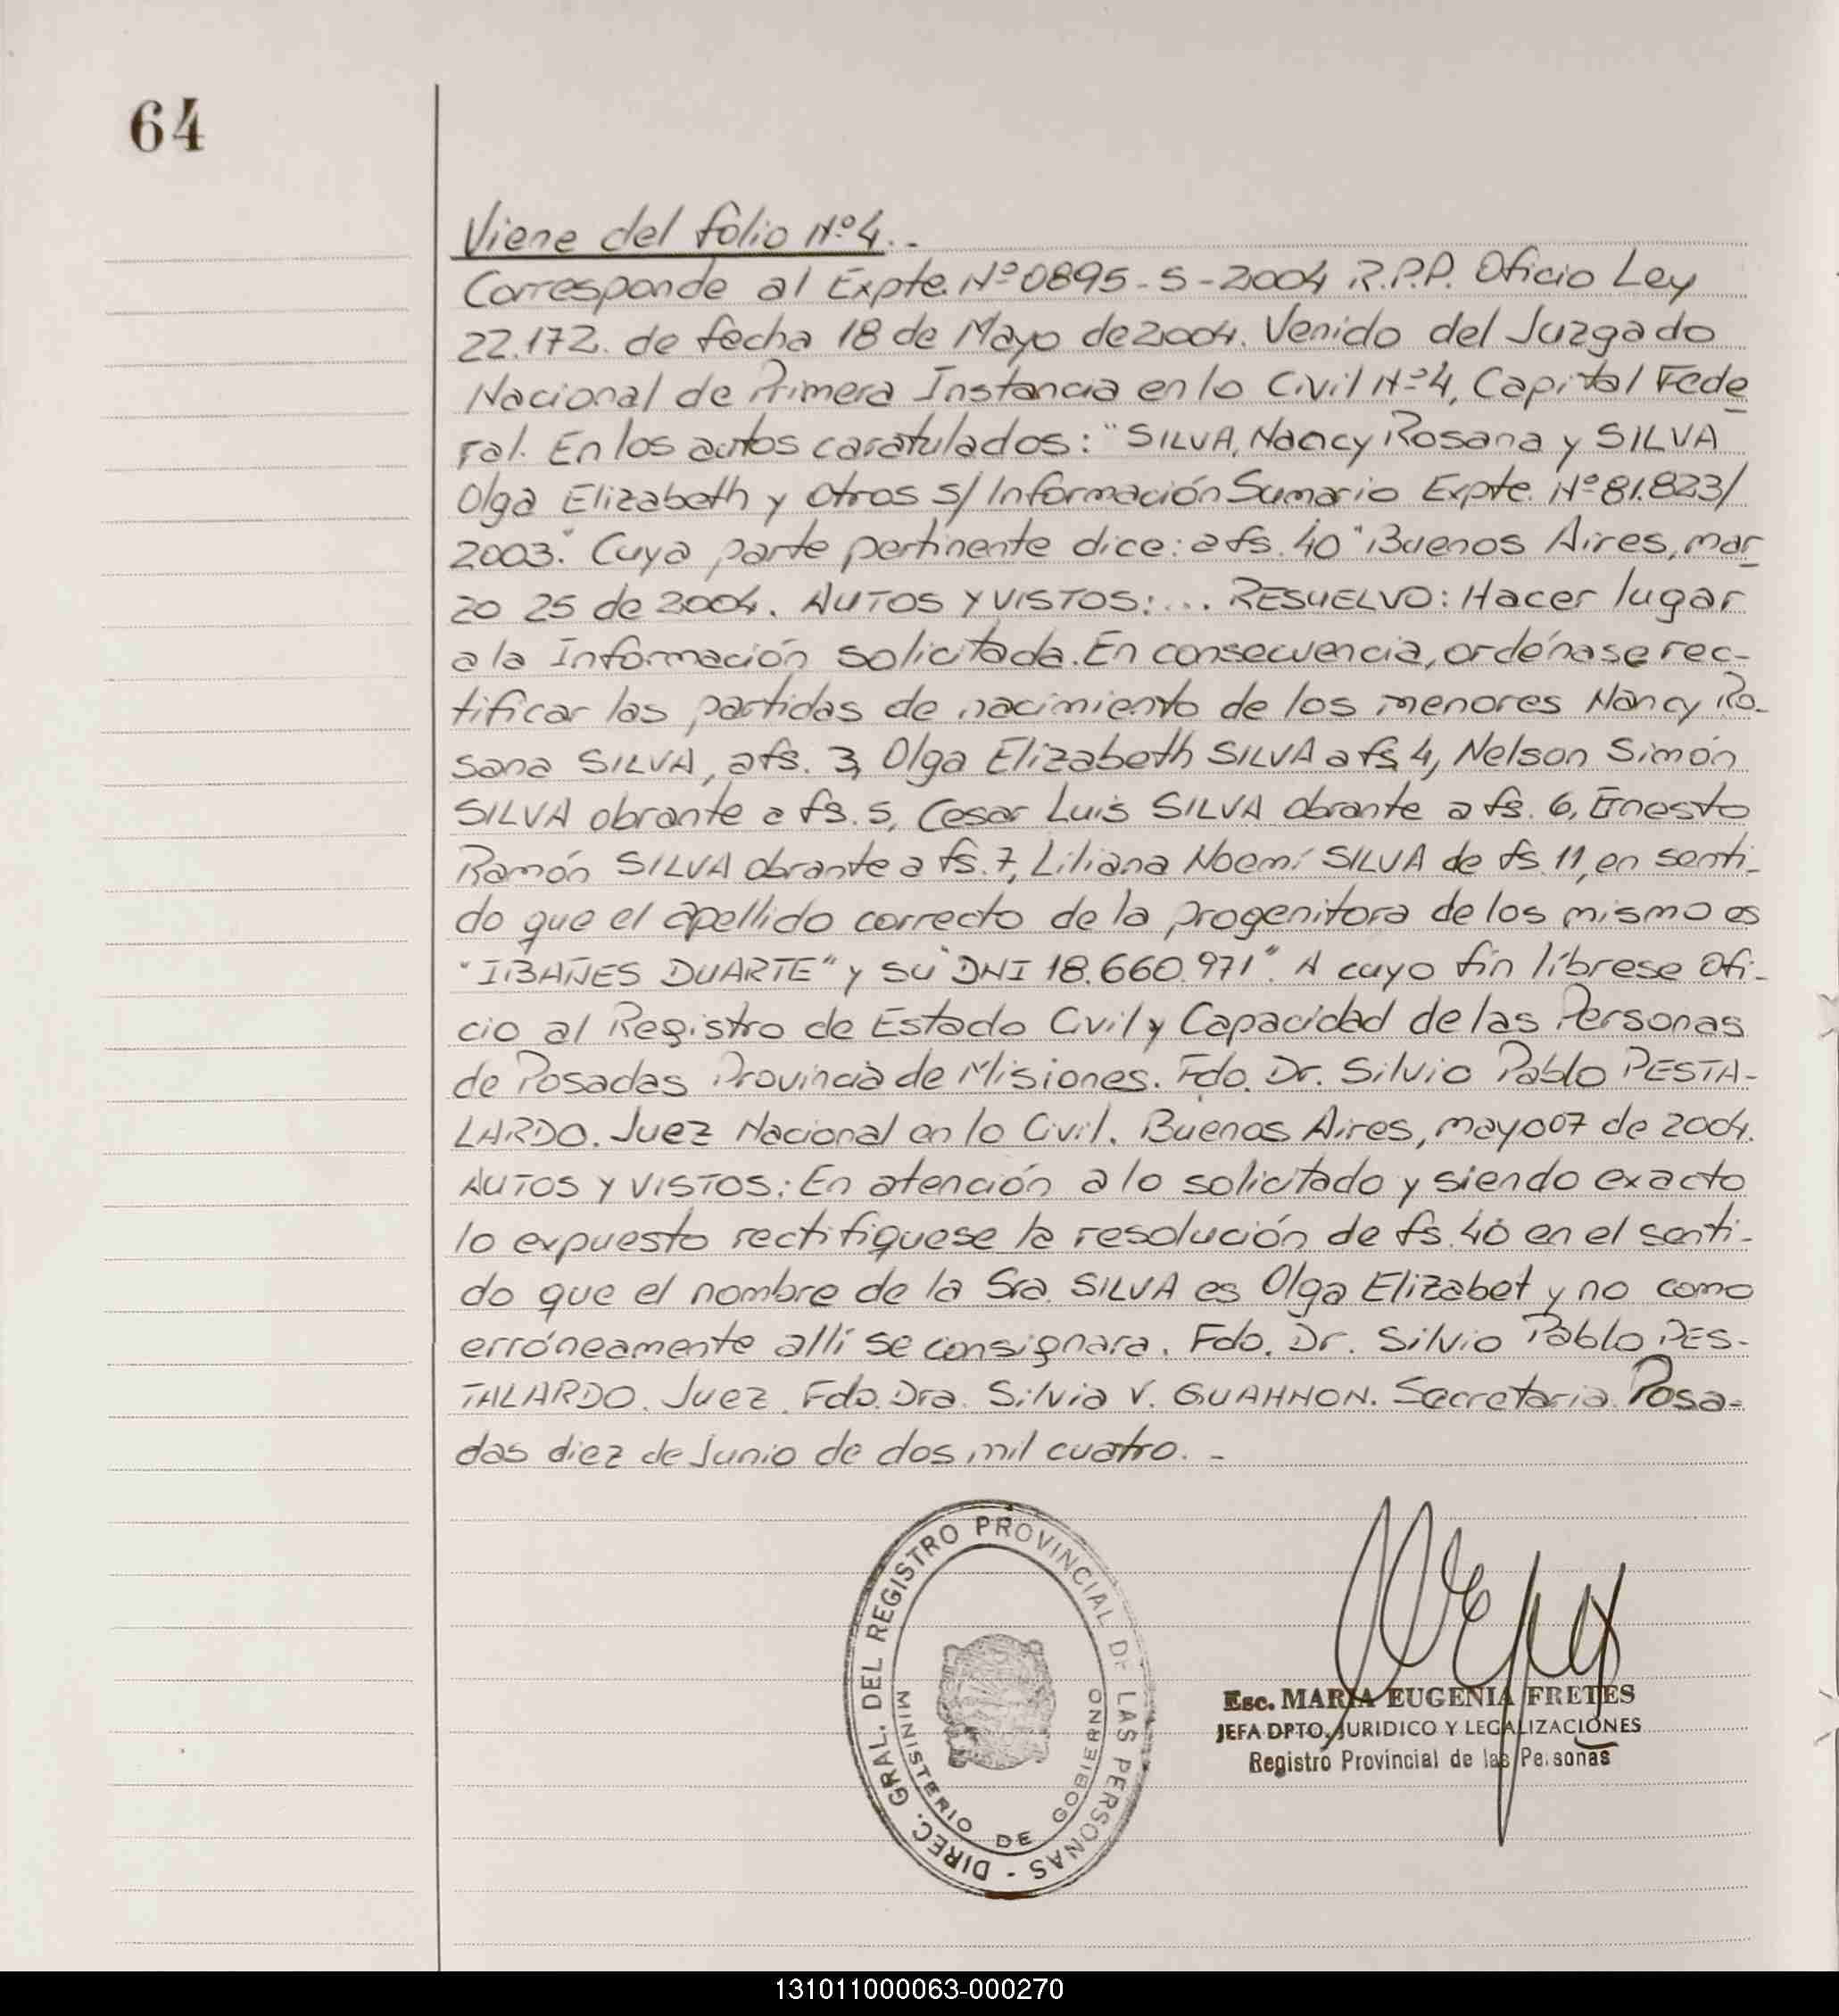 64
Viene del folio Nº4.-
Corresponde al Expte. Nº0895-S-2004 R.P.P. Oficio Ley
22.172. de fecha 18 de Mayo de 2004. Venido del Juzgado
Nacional de Primera Instancia en lo Civil Nº4, Capital Fede
ral. En los autos caratulados: "SILVA, Nancy Rosana y SILVA
Olga Elizabeth y Otros s/ Información Sumario Expte. Nº81.823/
2003." Cuya parte pertinente dice: a fs. 40 "Buenos Aires, mar
zo 25 de 2004. AUTOS Y VISTOS:... RESUELVO: Hacer lugar
a la Información solicitada. En consecuencia, ordénase rec-
tificar las partidas de nacimiento de los menores Nancy Ro-
sana SILVA, a fs. 3, Olga Elizabeth SILVA a fs 4, Nelson Simón
SILVA obrante a fs. 5, Cesar Luis SILVA obrante a fs. 6, Ernesto
Ramón SILVA obrante a fs. 7, Liliana Noemí SILVA de fs. 11, en senti-
do que el apellido correcto de la progenitora de los mismo es
"IBAÑES DUARTE" y su "DNI 18.660.971". A cuyo fin líbrese Ofi-
cio al Registro de Estado Civil y Capacidad de las Personas
de Posadas Provincia de Misiones. Fdo. Dr. Silvio Pablo PESTA-
LARDO. Juez Nacional en lo Civil. Buenos Aires, mayo 07 de 2004.
AUTOS Y VISTOS: En atención a lo solicitado y siendo exacto
lo expuesto rectifíquese la resolución de fs. 40 en el senti-
do que el nombre de la Sra. SILVA es Olga Elizabet y no como
erróneamente allí se consignara. Fdo. Dr. Silvio Pablo PES-
TALARDO. Juez. Fdo. Dra. Silvia V. GUAHNON. Secretaria. Posa-
das diez de Junio de dos mil cuatro. -
DIREC. GRAL. DEL REGISTRO PROVINCIAL DE LAS PERSONAS -
MINISTERIO DE GOBIERNO
Esc. MARIA EUGENIA FRETES
JEFA DPTO. JURIDICO Y LEGALIZACIONES
Registro Provincial de las Personas
131011000063-000270